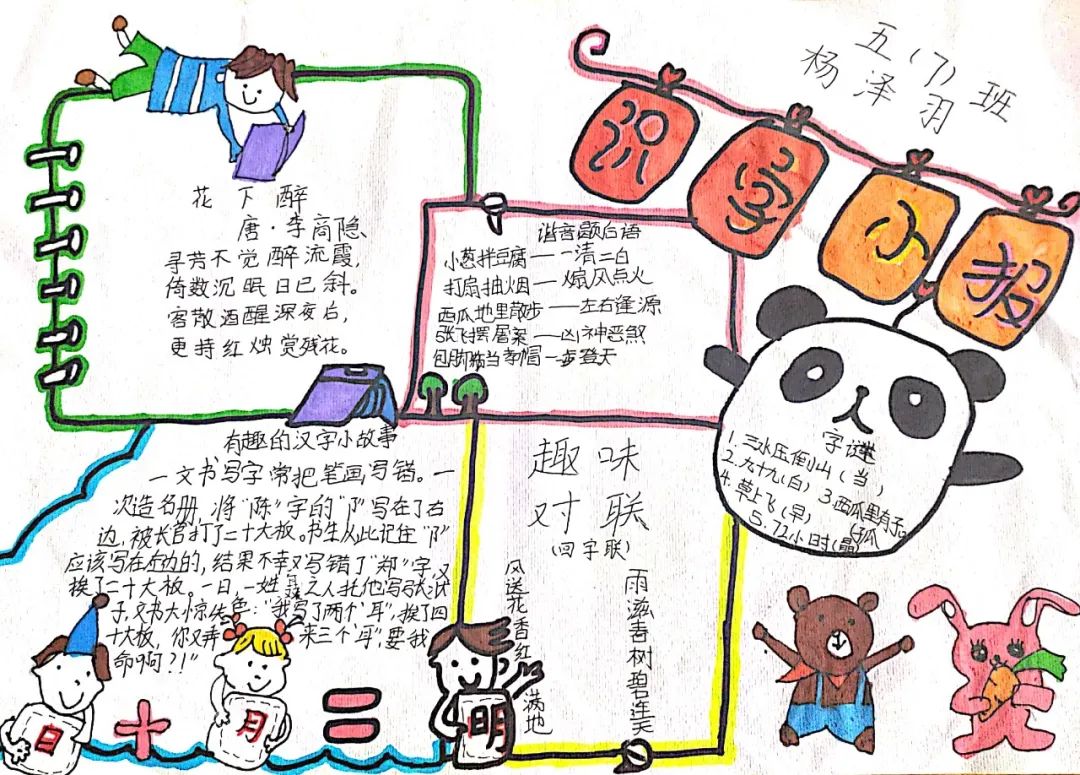 五（7）班
杨泽羽
识字小报
花下醉
唐·李商隐
寻芳不觉醉流霞，
倚数沉眠日已斜。
客散酒醒深夜后，
更持红烛赏残花。
谐音歇后语
小葱拌豆腐——一清二白
打扇抽烟——煽风点火
西瓜地里散步——左右逢源
张飞摆屠案——凶神恶煞
当孝帽一步登天
字谜
1. 三水压倒山（当）
2. 九十九（白）3.西瓜里有子。
（孤）
4. 草上飞（早）
5. 72小时（晶）
有趣的汉字小故事
一文书写字常把笔画写错。一
次造名册，将“陈”字的“阝”写在了右
边，被长官打了二十大板。书生从此记住“阝”
应该写在左边的，结果不幸又写错了“郑”字，又
挨了二十大板。一日，一姓聂之人托他写张状
子，文书大惊失色：“我写了两个‘耳’，挨了四
十大板，你又弄来三个‘耳’，要我
命啊？！”
趣味
对联
（四字联）
风送花香红满地
雨滋春树碧连天
日
月
明